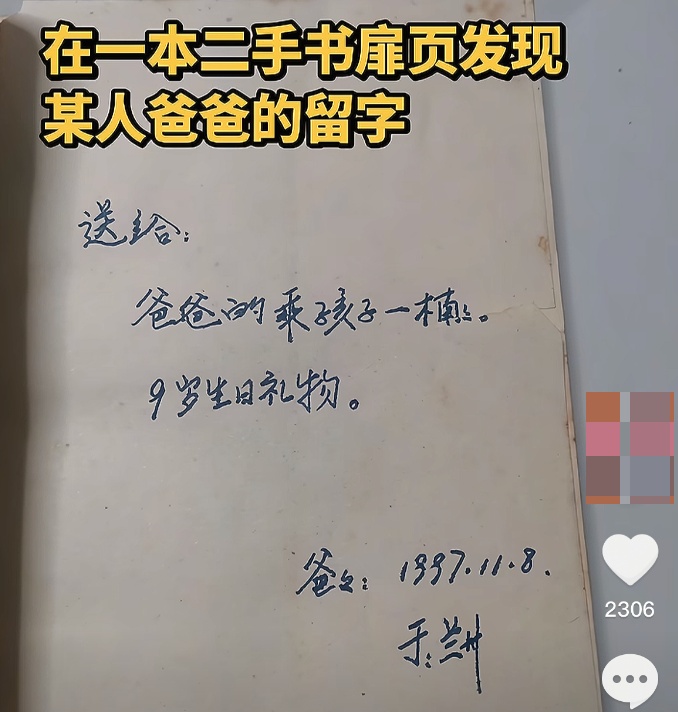 在一本二手书扉页发现
某人爸爸的留字
送给:
爸爸的乖孩子一楠々。
9岁生日礼物。
爸々: 1997.11.8.
于:兰州
2306